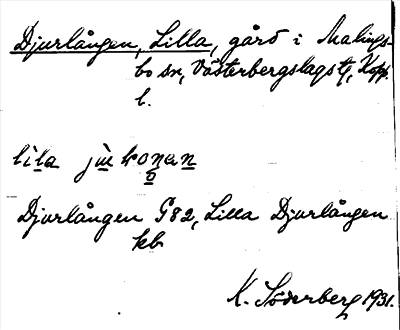 Djurlången, Lilla, gård i Malings-
bo sn, Västerbergslags tg, Kopp.
l.
lila
Djurlången G82, Lilla Djurlången
kb
K. Söderberg 1931.